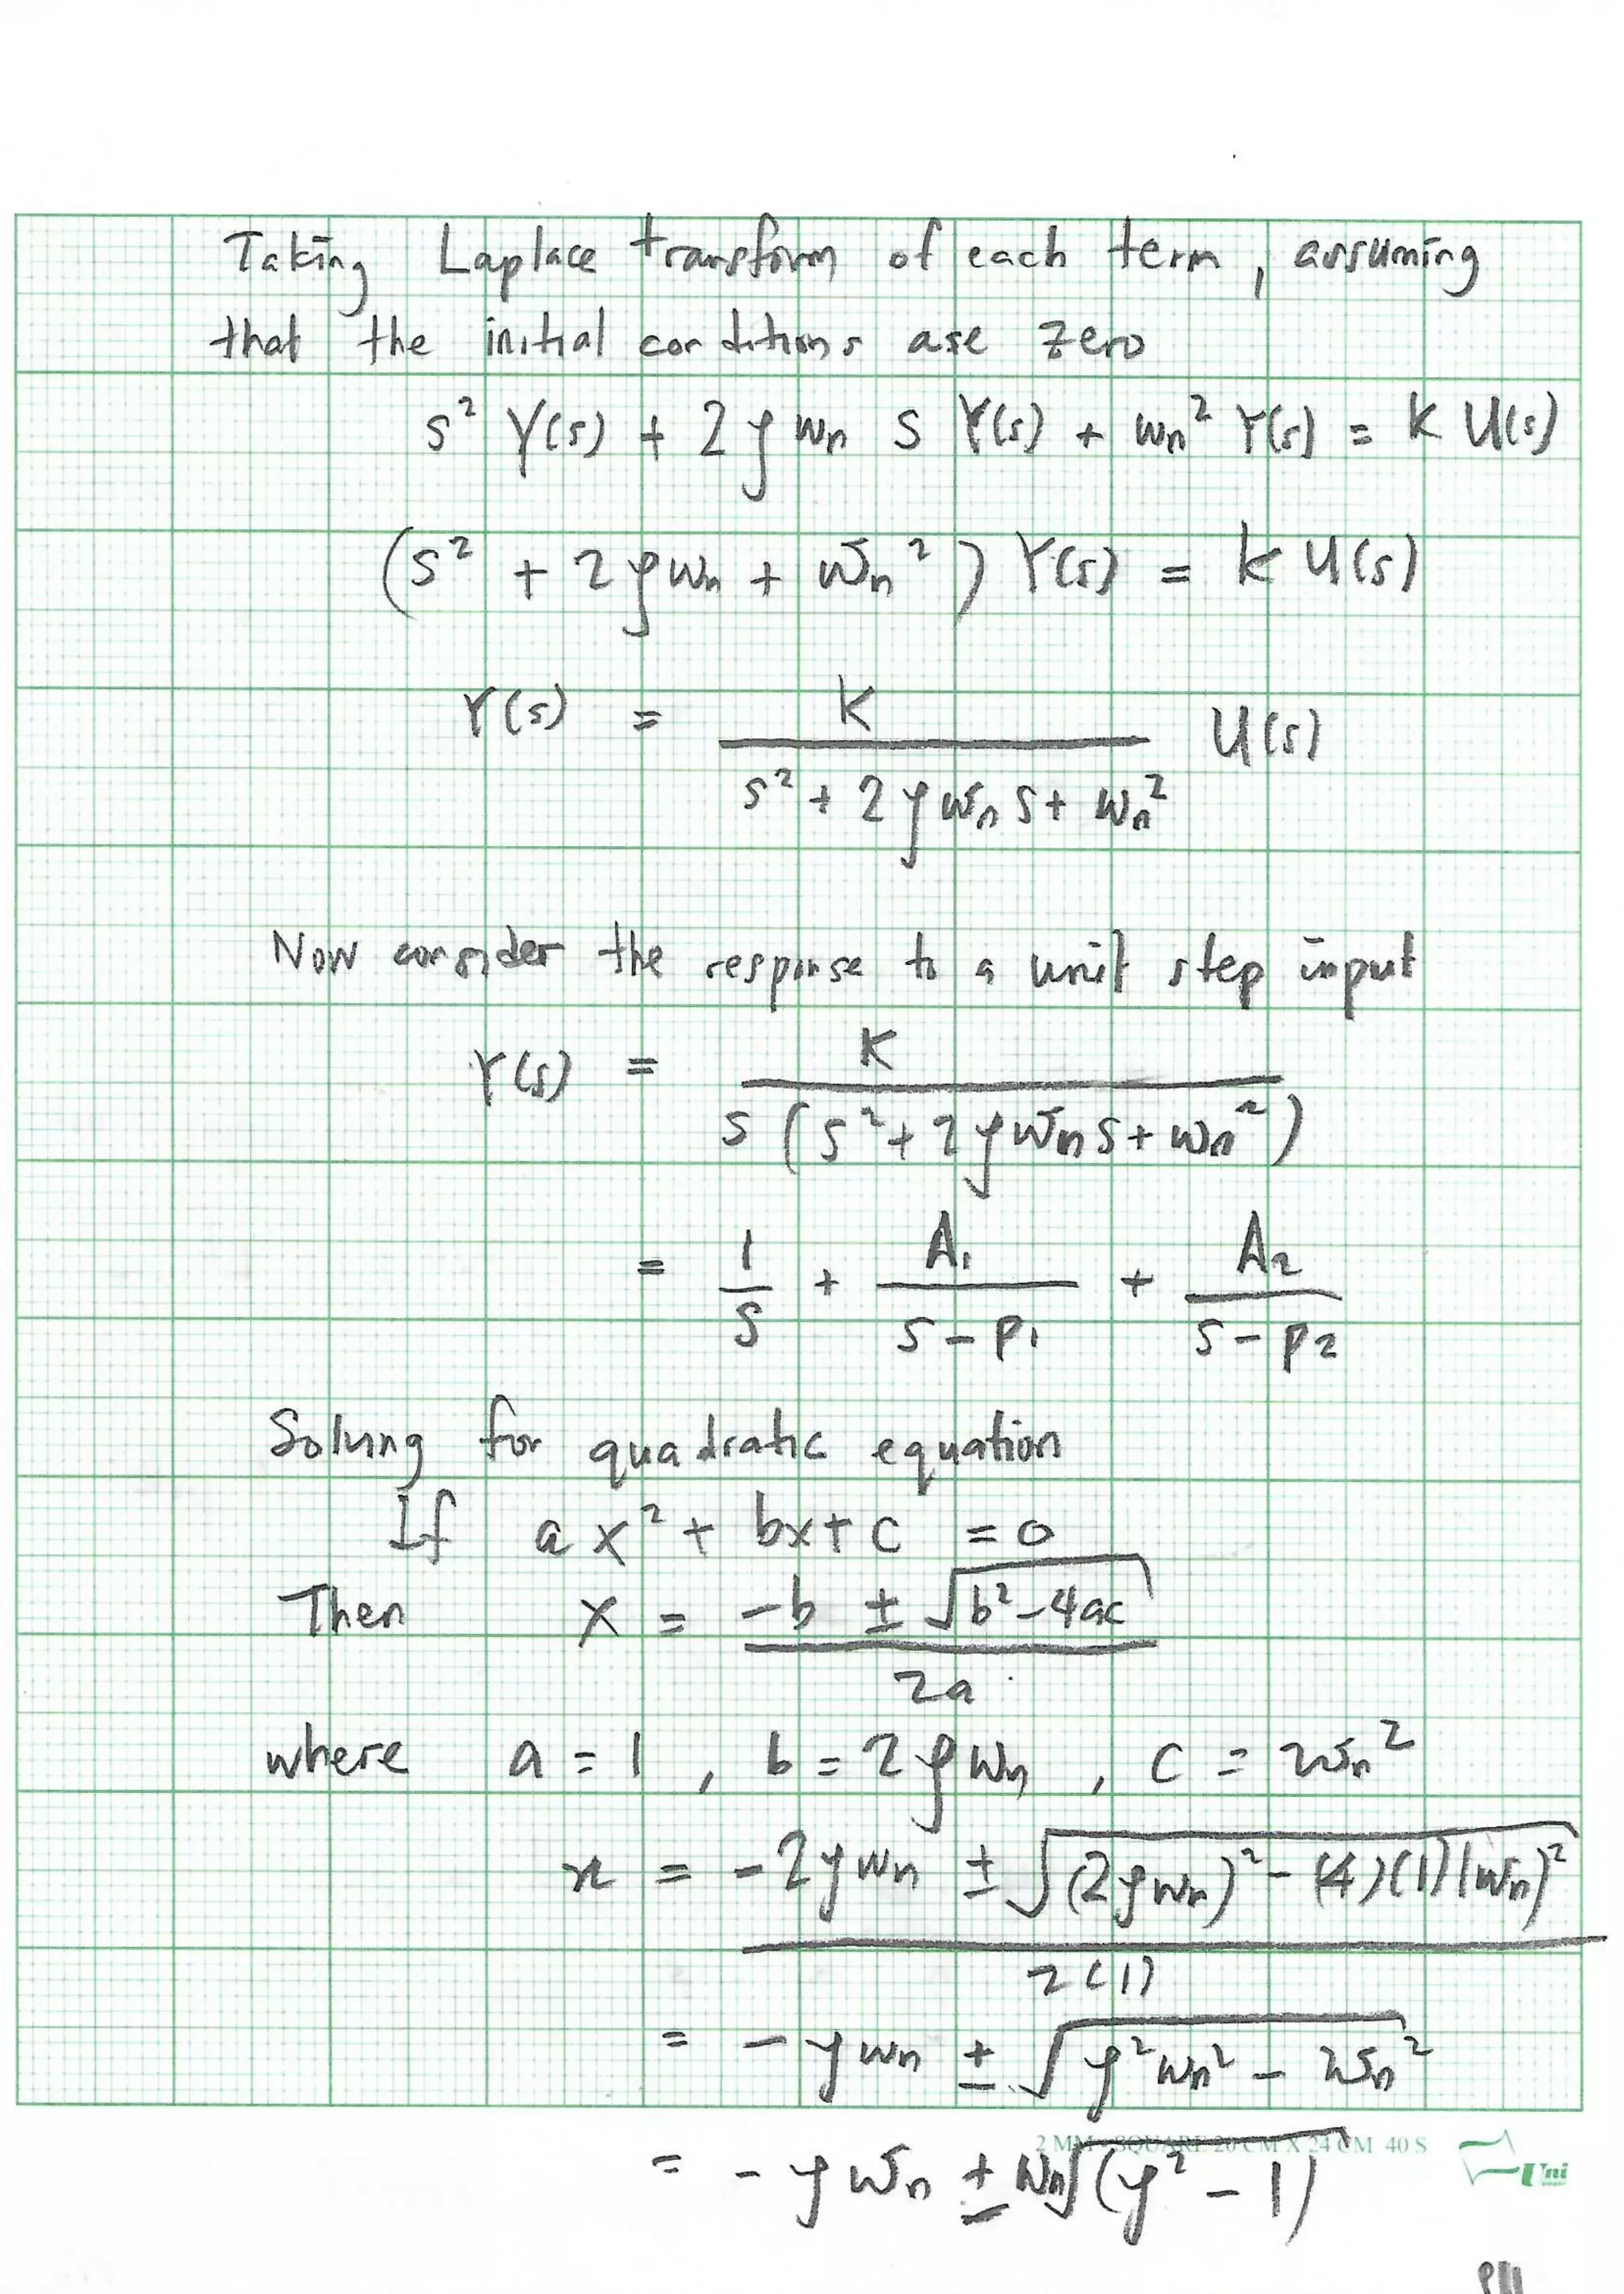 Taking Laplace transform of each term, assuming
that the initial conditions are zero
s² Y(s) + 2ζωn s Y(s) + ωn² Y(s) = K U(s)
(s² + 2ζωn + ωn²) Y(s) = K U(s)
Y(s) = K / (s² + 2ζωn s + ωn²) U(s)
Now consider the response to a unit step input
Y(s) = K / (s (s² + 2ζωn s + ωn²))
= 1/s + A1/(s - p1) + A2/(s - p2)
Solving for quadratic equation
If ax² + bx + c = 0
Then x = (-b ± √(b² - 4ac)) / 2a
where a = 1, b = 2ζωn, c = ωn²
x = (-2ζωn ± √((2ζωn)² - (4)(1)(ωn)²)) / 2(1)
= -ζωn ± √(ζ²ωn² - ωn²)
2 MM SQUARE 20 CM X 24 CM 40 S
Uni
= -ζωn ± ωn√(ζ² - 1)